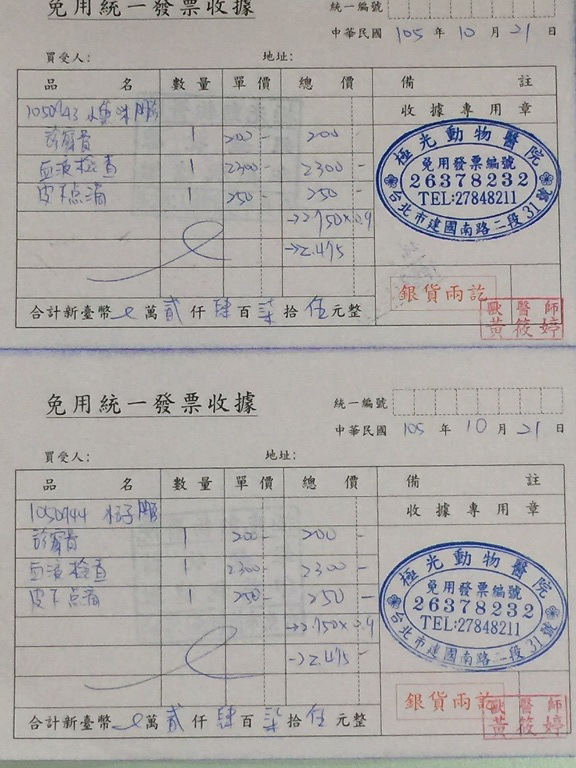 免用統一發票收據
統一編號
中華民國 105 年 10 月 21 日
買受人： 地址：
品 名 數量 單價 總 價 備 註
1050943
收據專用章
診察費 1 200- 200-
血液檢查 1 2300- 2300-
皮下点滴 1 250- 250-
→2750×0.9
→2.475
極光動物醫院
免用發票編號
26378232
TEL:27848211
台北市建國南路二段31號
銀貨兩訖
歐醫師
黃筱婷
合計新臺幣 萬 貳 仟 肆 百 柒 拾 伍 元整
免用統一發票收據
統一編號
中華民國 105 年 10 月 21 日
買受人： 地址：
品 名 數量 單價 總 價 備 註
1050944
收據專用章
診察費 1 200- 200-
血液檢查 1 2300- 2300-
皮下点滴 1 250- 250-
→2750×0.9
→2.475-
極光動物醫院
免用發票編號
26378232
TEL:27848211
台北市建國南路二段31號
銀貨兩訖
歐醫師
黃筱婷
合計新臺幣 萬 貳 仟 肆 百 柒 拾 伍 元整